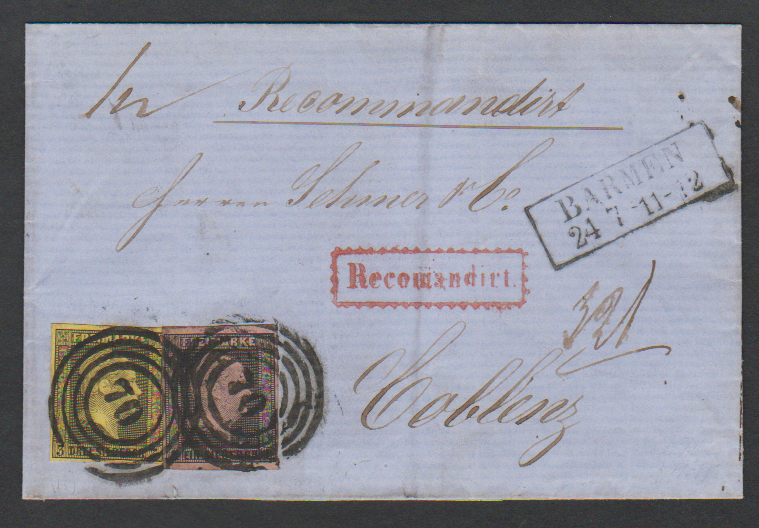 Recommandirt
Herren Schmer & Co.
BARMEN
24 7 11-12
Recomandirt.
321
Coblenz
70
70